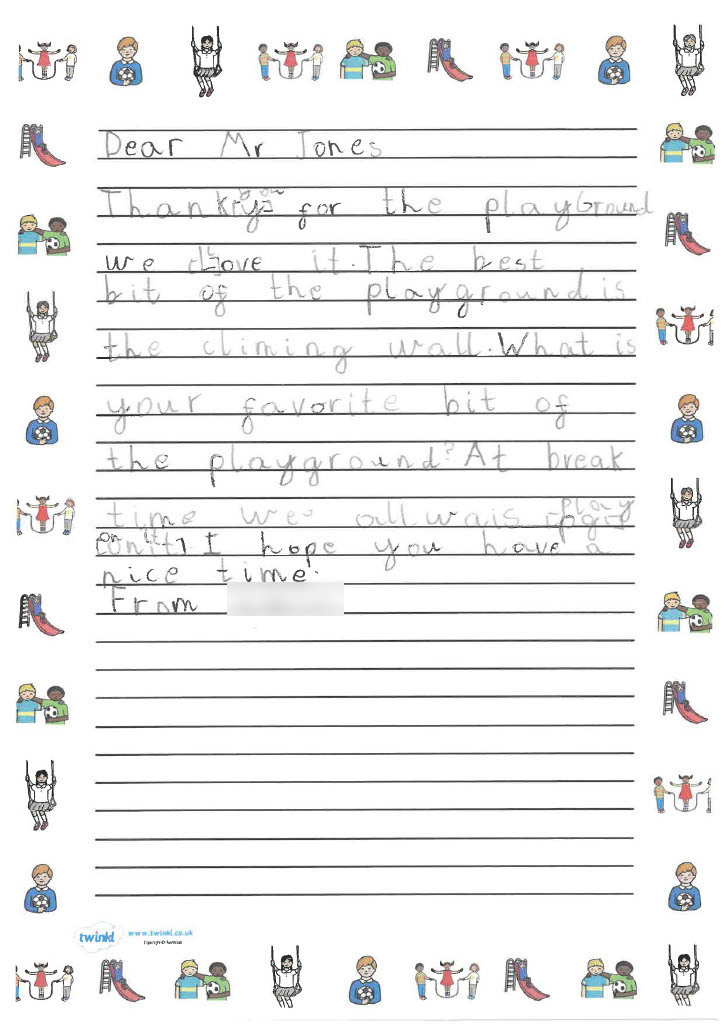 Dear Mr Jones
Thank you for the playGround
we love it. The best
bit of the playground is
the climing wall. What is
your favorite bit of
the playground? At break
time we allwais play
on it. I hope you have a
nice time.
From
twinkl www.twinkl.co.uk